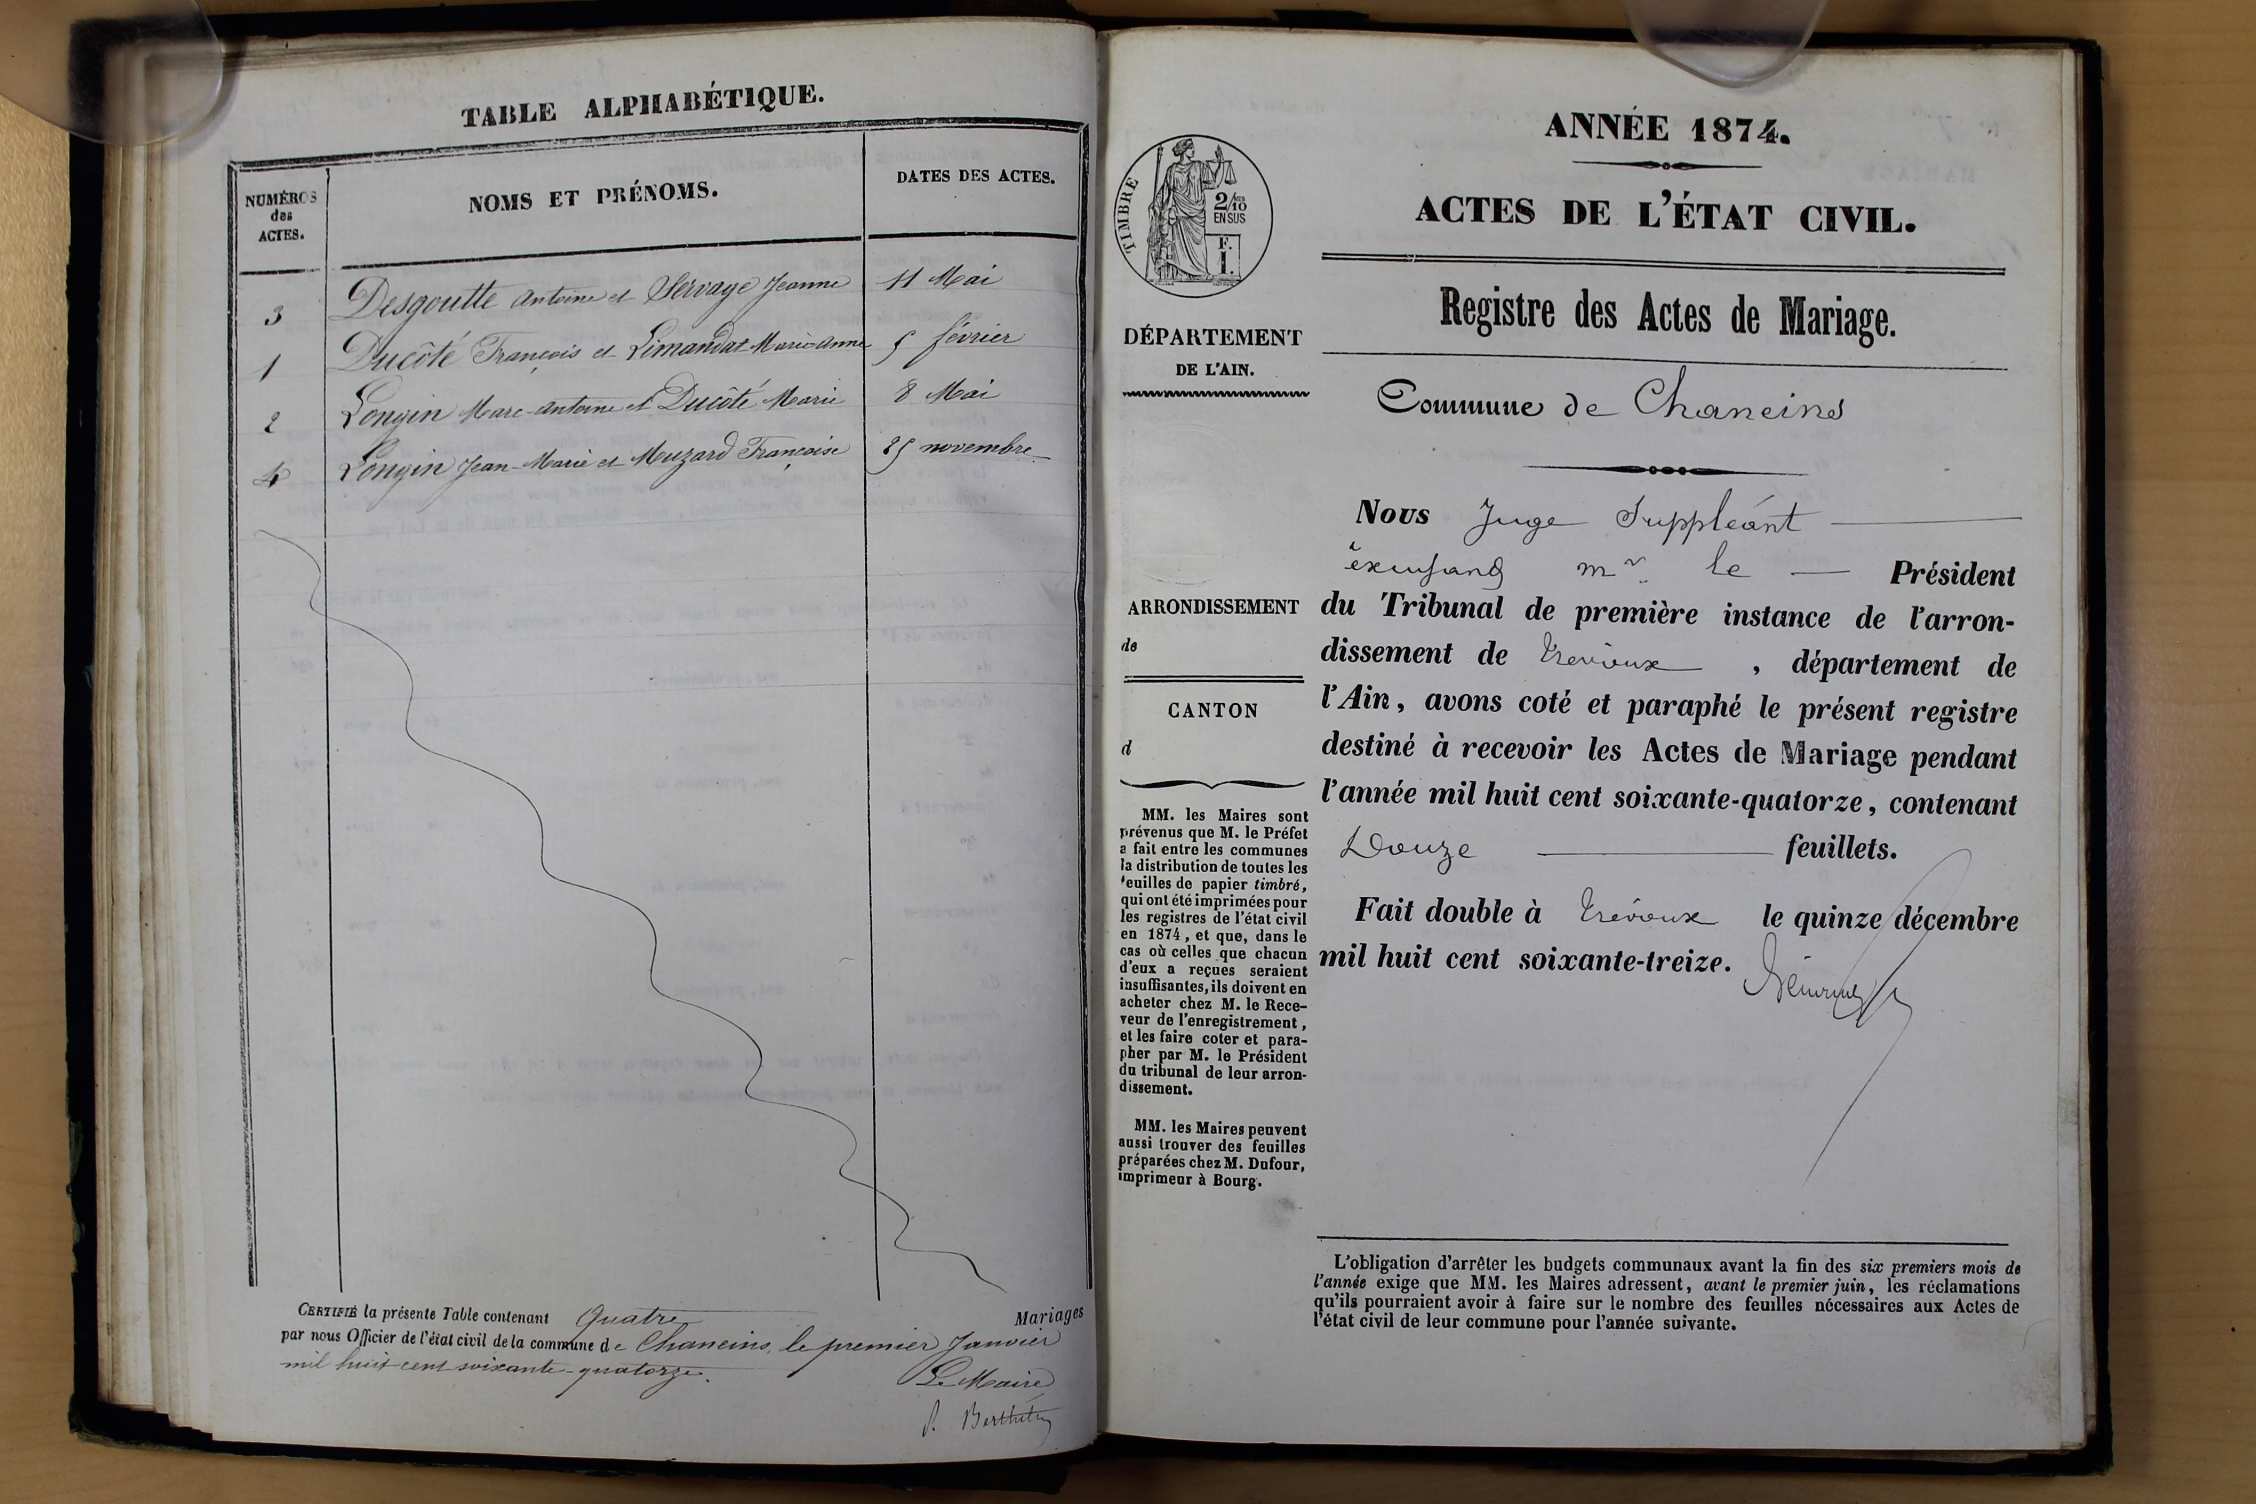 TABLE ALPHABÉTIQUE.
NUMÉROS des ACTES. NOMS ET PRÉNOMS. DATES DES ACTES.
3 Desgoutte Antoine et Servaye Jeanne 11 Mai
1 Ducôté François et Limandat Marie Anne 5 février
2 Longin Marc-Antoine et Ducôté Marie 8 Mai
4 Longin Jean-Marie et Muzard Françoise 25 novembre
CERTIFIÉ la présente Table contenant Quatre Mariages
par nous Officier de l'état civil de la commune de Chaneins, le premier Janvier
mil huit cent soixante-quatorze.
Le Maire
ANNÉE 1874.
ACTES DE L'ÉTAT CIVIL.
Registre des Actes de Mariage.
Commune de Chaneins
TIMBRE
2/10
EN SUS
F.
1.
DÉPARTEMENT
DE L'AIN.
ARRONDISSEMENT
de
CANTON
d
MM. les Maires sont
prévenus que M. le Préfet
a fait entre les communes
la distribution de toutes les
feuilles de papier timbré,
qui ont été imprimées pour
les registres de l'état civil
en 1874, et que, dans le
cas où celles que chacun
d'eux a reçues seraient
insuffisantes, ils doivent en
acheter chez M. le Rece-
veur de l'enregistrement,
et les faire coter et para-
pher par M. le Président
du tribunal de leur arron-
dissement.
MM. les Maires peuvent
aussi trouver des feuilles
préparées chez M. Dufour,
imprimeur à Bourg.
Nous Juge Suppléant
mr le Président
du Tribunal de première instance de l'arron-
dissement de Trévoux, département de
l'Ain, avons coté et paraphé le présent registre
destiné à recevoir les Actes de Mariage pendant
l'année mil huit cent soixante-quatorze, contenant
Douze feuillets.
Fait double à Trévoux le quinze décembre
mil huit cent soixante-treize.
L'obligation d'arrêter les budgets communaux avant la fin des six premiers mois de
l'année exige que MM. les Maires adressent, avant le premier juin, les réclamations
qu'ils pourraient avoir à faire sur le nombre des feuilles nécessaires aux Actes de
l'état civil de leur commune pour l'année suivante.